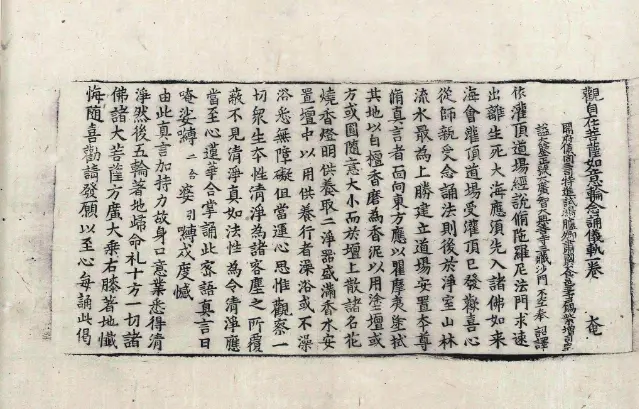 觀自在菩薩如意輪念誦儀軌卷 大菴
開府儀同三司特進試鴻臚卿肅國公食邑三千戶賜紫贈司空
謚大鑒正號大廣智大興善寺三藏沙門不空奉 詔譯
依灌頂道場經說脩陁羅尼法門求速
出離生死大海應須先入諸佛如來
海會灌頂道場受灌頂已發歡喜心
從師親受念誦法則後於淨室山林
流水最為上勝建立道場安置本尊
脩真言者面向東方應以瞿摩夷塗拭
其地以白檀香磨為香泥以用塗壇或
方或圓隨意大小而於壇上散諸名花
燒香燈明供養取二淨器盛滿香水安
置壇中以用供養行者澡浴或不澡
浴悉無障礙但當運心思惟觀察一
切衆生本性清淨為諸客塵之所覆
蔽不見清淨真如法性為令清淨應
當至心蓮華合掌誦此密語真言曰
唵娑嚩二合婆引嚩戍度憾
由此真言加持力故身口意業悉得清
淨然後五輪著地歸命礼十方一切諸
佛諸大菩薩方廣大乘右膝著地懺
悔隨喜勸請發願以至心每誦此偈